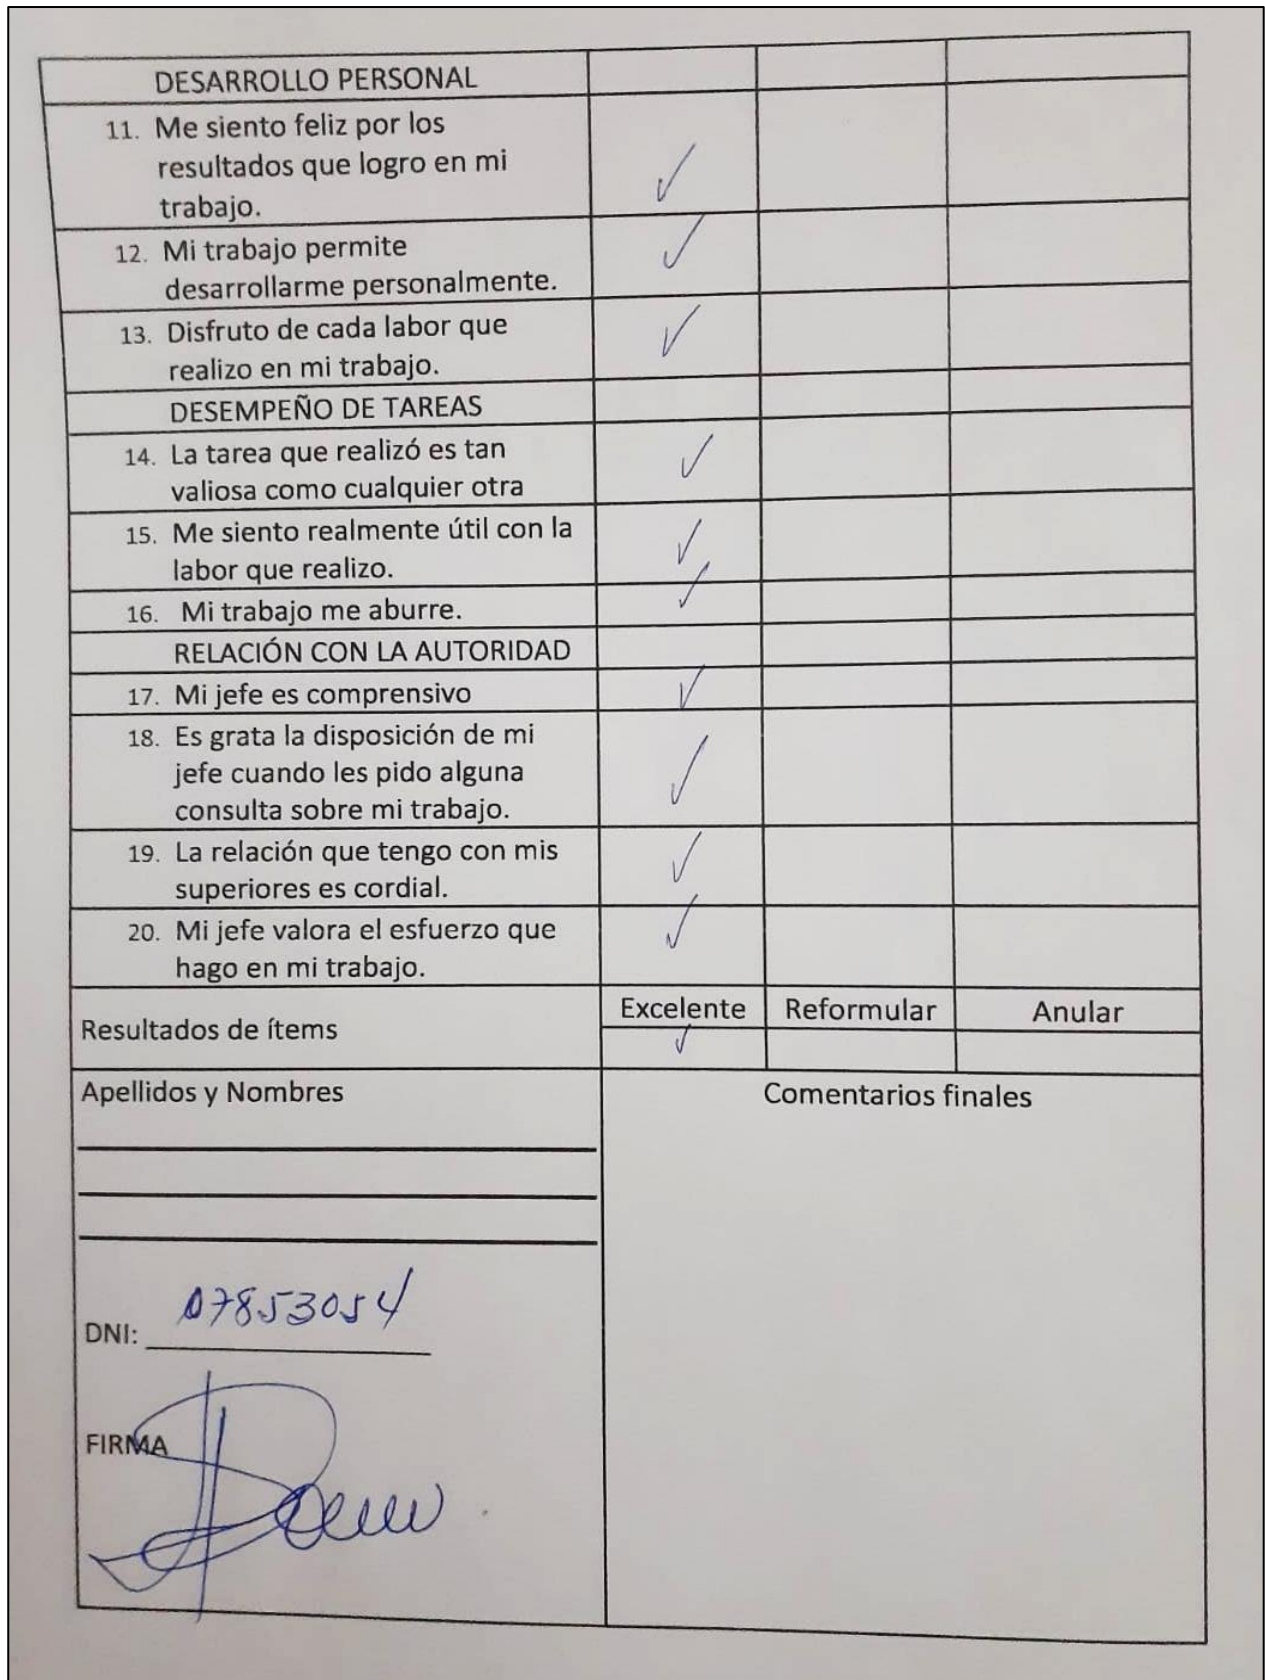 DESARROLLO PERSONAL
11. Me siento feliz por los
resultados que logro en mi
trabajo.
12. Mi trabajo permite
desarrollarme personalmente.
13. Disfruto de cada labor que
realizo en mi trabajo.
DESEMPEÑO DE TAREAS
14. La tarea que realizó es tan
valiosa como cualquier otra
15. Me siento realmente útil con la
labor que realizo.
16. Mi trabajo me aburre.
RELACIÓN CON LA AUTORIDAD
17. Mi jefe es comprensivo
18. Es grata la disposición de mi
jefe cuando les pido alguna
consulta sobre mi trabajo.
19. La relación que tengo con mis
superiores es cordial.
20. Mi jefe valora el esfuerzo que
hago en mi trabajo.
Resultados de ítems
Excelente Reformular Anular
Apellidos y Nombres
Comentarios finales
DNI: 07853054
FIRMA